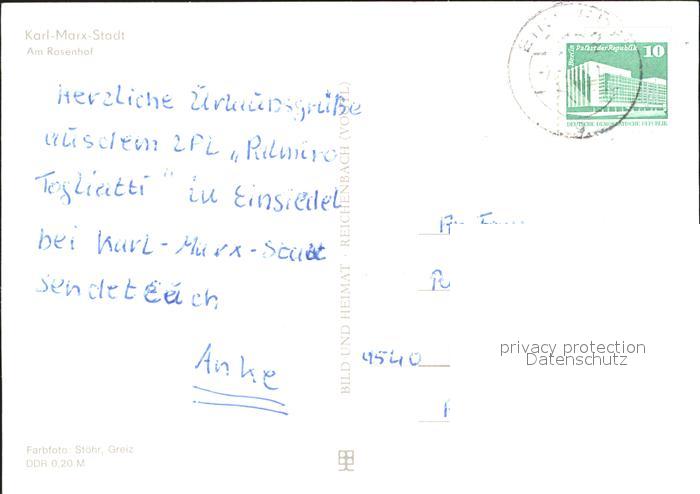 Karl-Marx-Stadt
Am Rosenhof
Berlin Palast der Republik 10
DEUTSCHE DEMOKRATISCHE REPUBLIK
Herzliche Urlaubsgrüße
aus dem ZPL „Palmiro
Togliatti" in Einsiedel
bei Karl-Marx-Stadt
sendet Euch
Anke
BILD UND HEIMAT · REICHENBACH (VOGTL)
9540
privacy protection
Datenschutz
Farbfoto: Stöhr, Greiz
DDR 0,20 M